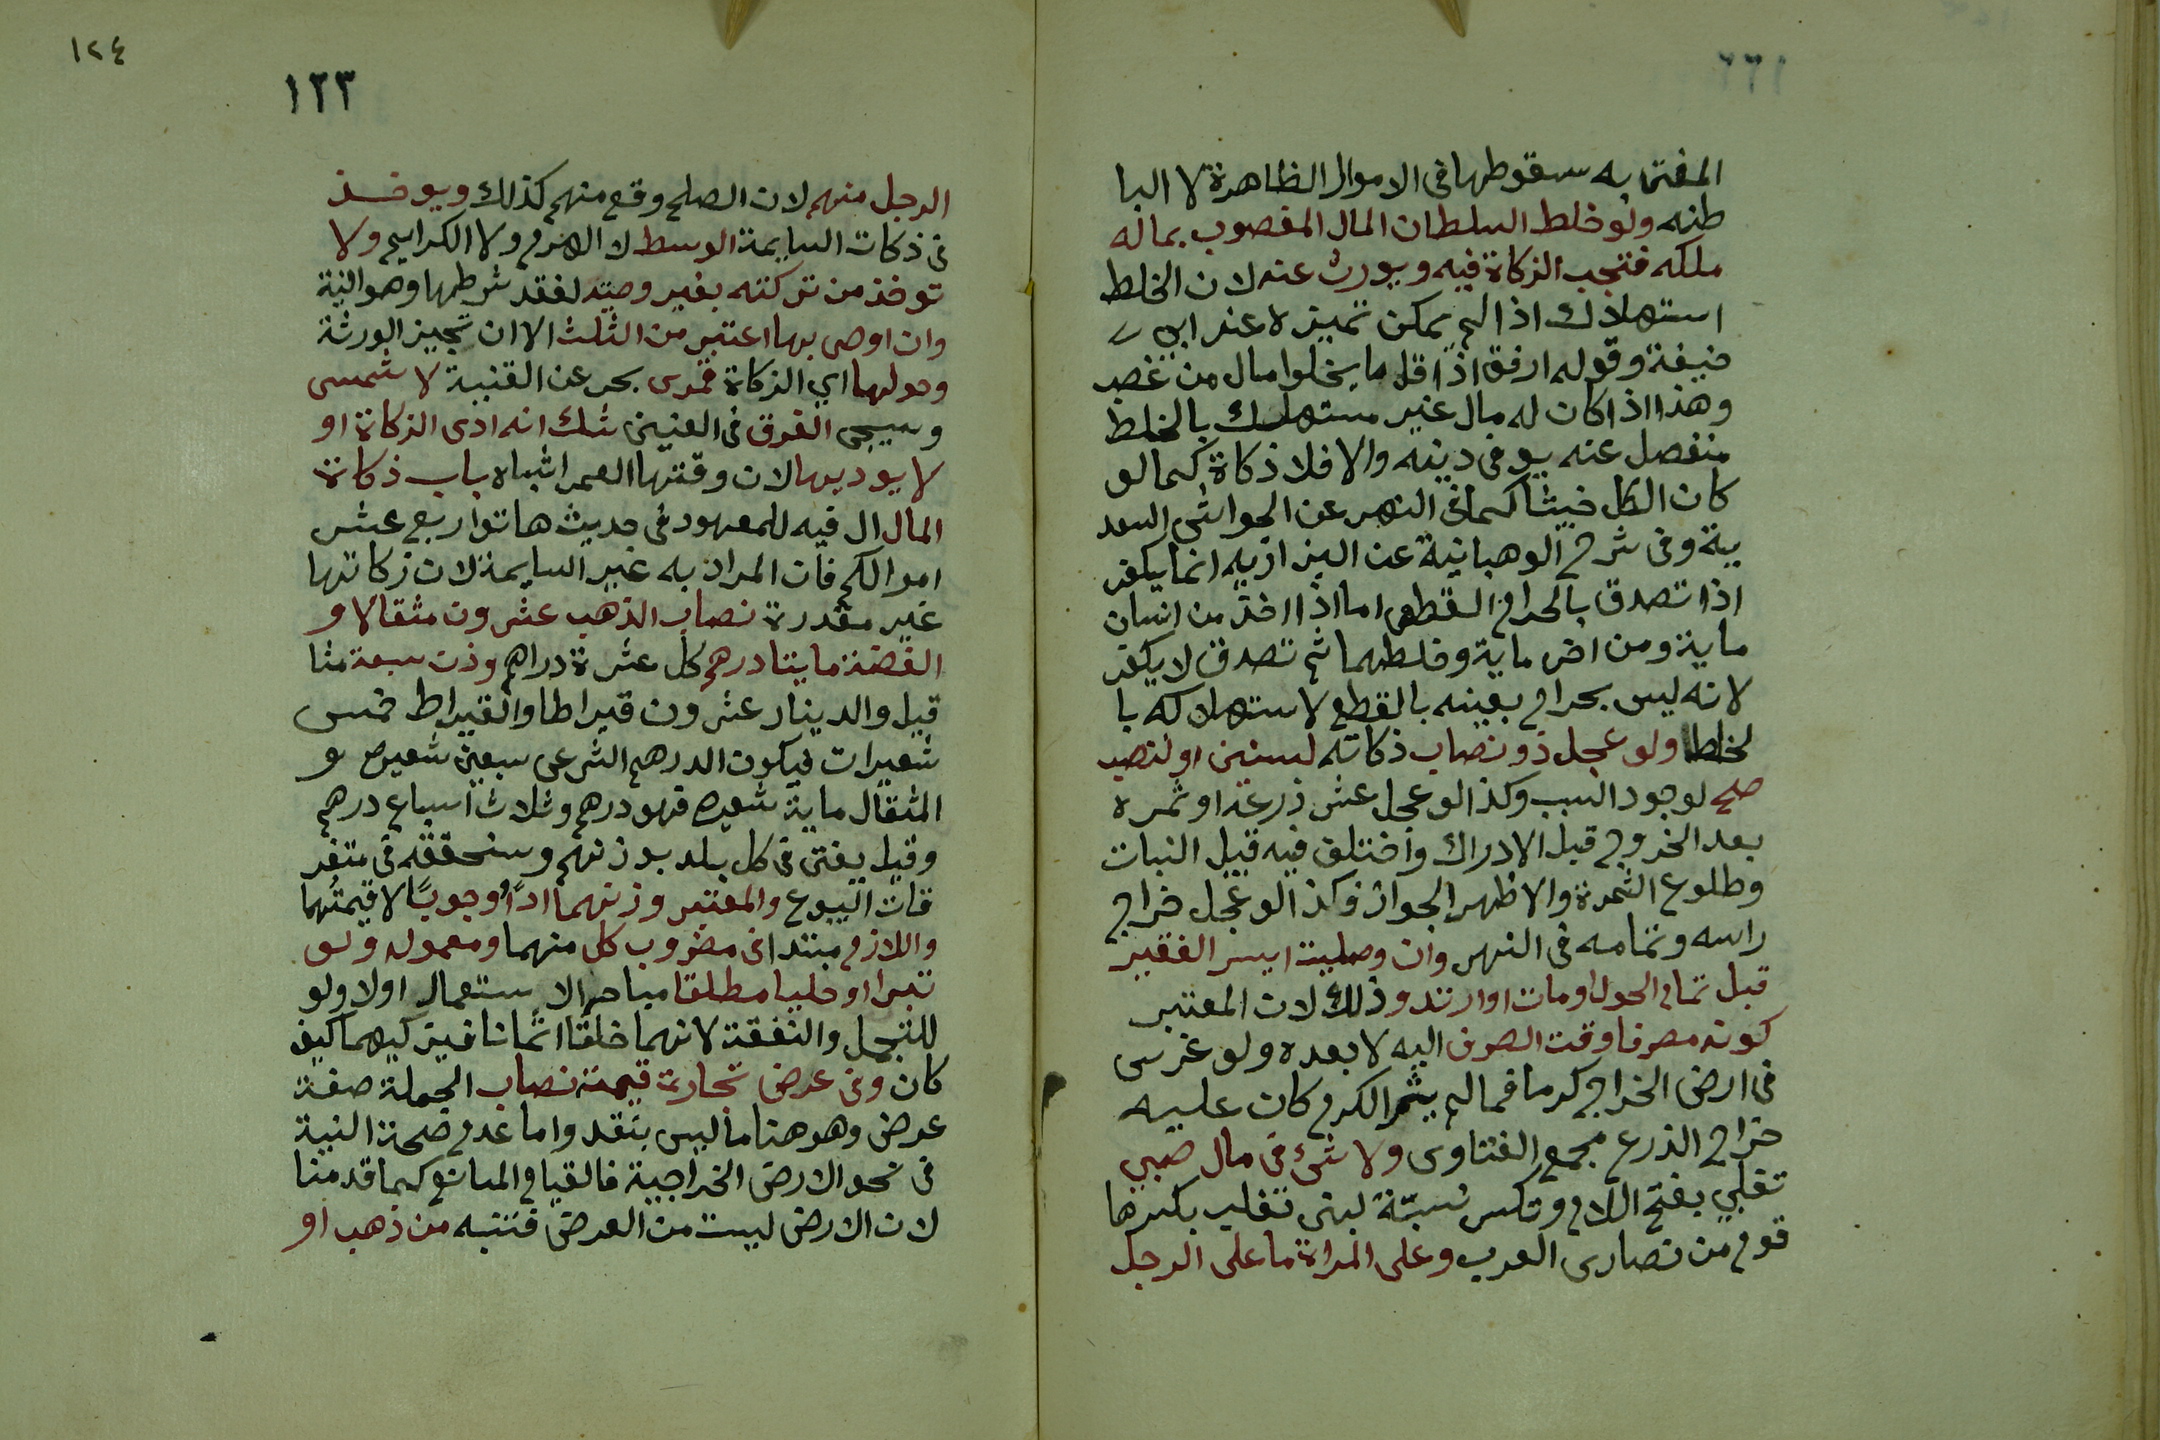 المفتى به سقوطها فى الاموال الظاهرة لا البا
طنه ولو خلط السلطان المال المغصوب بماله
ملكه فتجب الزكاة فيه ويورث عنه لان الخلط
استهلاك اذا لم يمكن تميزه عند ابي
حنيفة وقوله ارفق اذا قل ما يخلوا مال من غصب
وهذا اذا كان له مال غير مستهلك بالخلط
منفصل عنه يوفى دينه والا فلا زكاة كما لو
كان الكل خبيثا كما فى النهر عن الحواشى السعد
ية وفى شرح الوهبانية عن البزازيه انما يكفر
اذا تصدق بالحرام القطعى اما اذا اخذ من انسان
ماية ومن اخر ماية وخلطهما ثم تصدق لا يكفر
لانه ليس بحرام بعينه بالقطع لاستهلاكه با
لخلط ولو عجل ذو نصاب زكاته لسنين او لنصب
صح لوجود السبب وكذا لو عجل عشر زرعه او ثمره
بعد الخروج قبل الادراك واختلف فيه قبل النبات
وطلوع الثمرة والاظهر الجواز وكذا لو عجل خراج
راسه وتمامه فى النهر وان وصلية ايسر الفقير
قبل تمام الحول او مات او ارتد وذلك لان المعتبر
كونه مصرفا وقت الصرف اليه لا بعده ولو غرس
فى ارض الخراج كرما فما لم يثمر الكرم كان عليه
خراج الزرع مجمع الفتاوى ولا شئ فى مال صبي
تغلبي بفتح اللام وتكسر نسبّة لبنى تغلب بكسرها
قوم من نصارى العرب وعلى المراة ما على الرجل
١٢٤
١٢٣
الرجل منهم لان الصلح وقع منهم كذلك ويوخذ
فى زكات السايمة الوسط لا الهرم ولا الكرايم ولا
توخذ من تركته بغير وصيته لفقد شرطها وهو النية
وان اوصى بها اعتبر من الثلث الا ان تجيز الورثة
وحولها اي الزكاة قمرى بحر عن القنية لا شمسى
وسيجى الفرق فى العنين شك انه ادى الزكاة او
لا يوديها لان وقتها العمر اشباه باب زكاة
المال ال فيه للمعهود فى حديث هاتوا ربع عشر
اموالكم فان المراد به غير السايمة لان زكاتها
غير مقدرة نصاب الذهب عشرون مثقالا و
الفضة مايتا درهم كل عشرة دراهم وزن سبعة مثا
قيل والدينار عشرون قيراطا والقيراط خمس
شعيرات فيكون الدرهم الشرعى سبعين شعيره و
المثقال ماية شعيره فهو درهم وثلاث اسباع درهم
وقيل يفتى فى كل بلد بوزنهم وسنحققه فى متفر
قات البيوع والمعتبر وزنهما اداً ووجوباً لا قيمتُهما
واللازم مبتدا فى مضروب كل منهما ومعموله ولو
تبرا او حليا مطلقا مباح الاستعمال او لا ولو
للتجمل والنفقة لانهما خلقا اثمانا فيزكيهما كيف
كان وفى عرض تجارة قيمته نصاب الجملة صفة
عرض وهو هنا ما ليس بنقد واما عدم صحة النية
فى نحو الارض الخراجية فالقيام المانع كما قدمنا
لان الارض ليست من العرض فتنبه من ذهب او